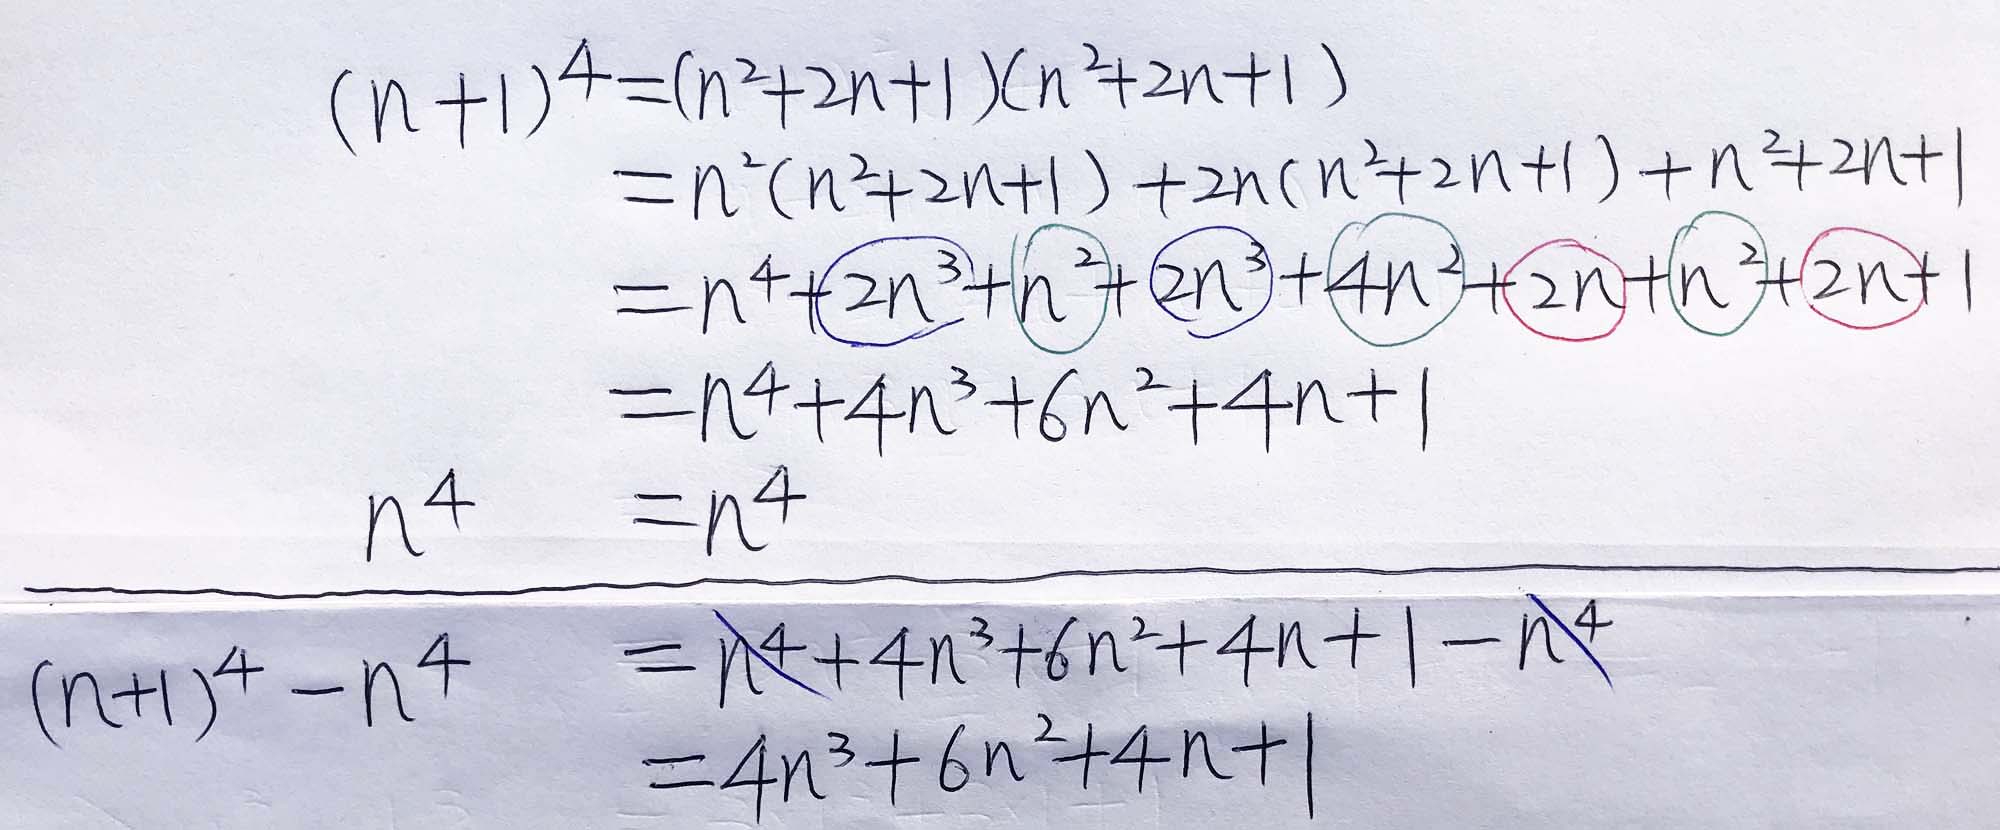 (n+1)⁴=(n²+2n+1)(n²+2n+1)
=n²(n²+2n+1)+2n(n²+2n+1)+n²+2n+1
=n⁴+2n³+n²+2n³+4n²+2n+n²+2n+1
=n⁴+4n³+6n²+4n+1
n⁴ =n⁴
(n+1)⁴-n⁴ =n⁴+4n³+6n²+4n+1-n⁴
=4n³+6n²+4n+1